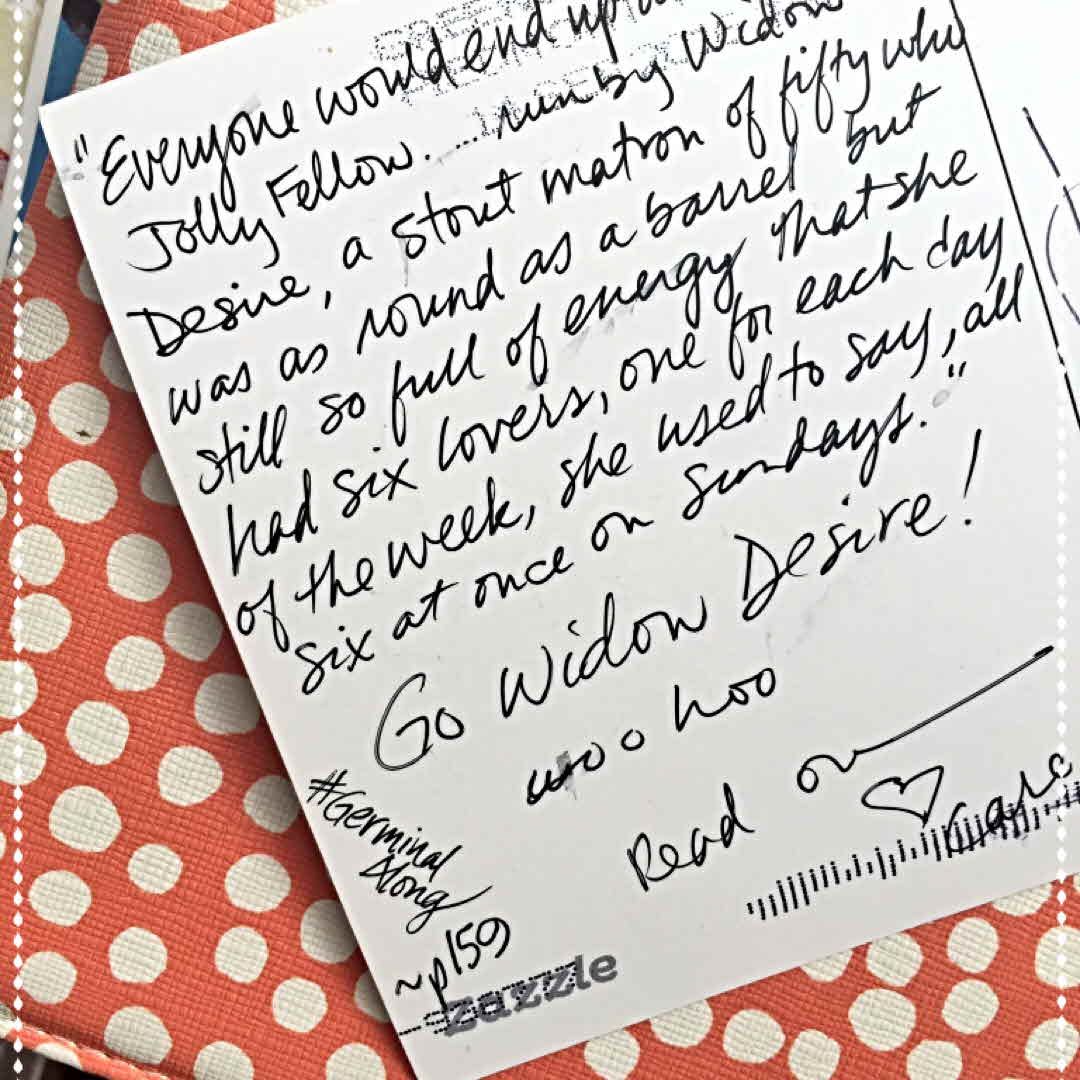 "Everyone would end up
Jolly Fellow. ... run by Widow
Desire, a stout matron of fifty who
was as round as a barrel but
still so full of energy that she
had six lovers, one for each day
of the week, she used to say, all
six at once on sundays."
Go Widow Desire!
woo hoo
Read on
#Germinal
Along
~p159
zazzle